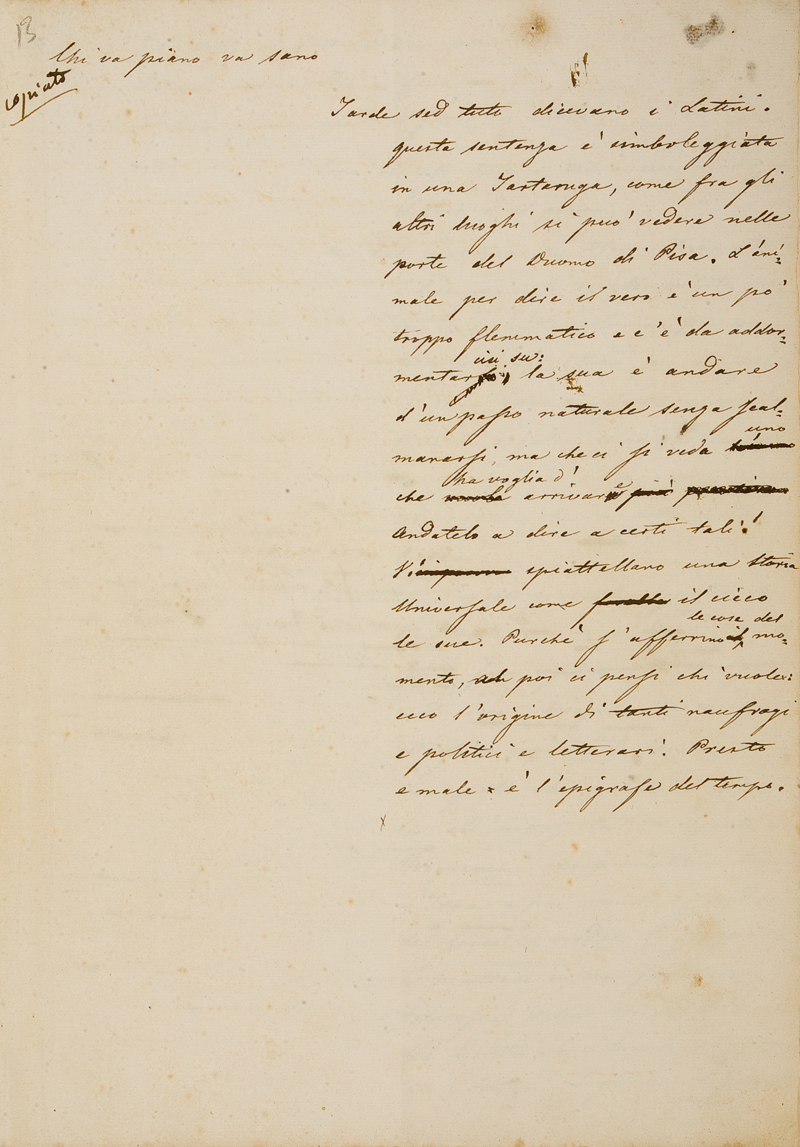 13
Chi va piano va sano
copiato
Tarde sed tuto dicevano i Latini.
questa sentenza è simboleggiata
in una Tartaruga, come fra gli
altri luoghi si può vedere nelle
porte del Duomo di Pisa. L'ani-
male per dire il vero è un pò
troppo flemmatico e c'è da addor-
cisi su:
mentar, la sua è andare
d'un passo naturale senza scal-
uno
manarsi, ma che ci si veda
ha voglia d'
che arrivare più
Andatelo a dire a certi tali!
Vi spiattellano una Storia
Universale come il cieco
le cose del
le sue. Purchè s'afferrino il mo-
mento, ah poi ci pensi chi vuole:
ecco l'origine di tanti naufragi
e politici e letterari. Presto
e male è l'epigrafe del tempo.